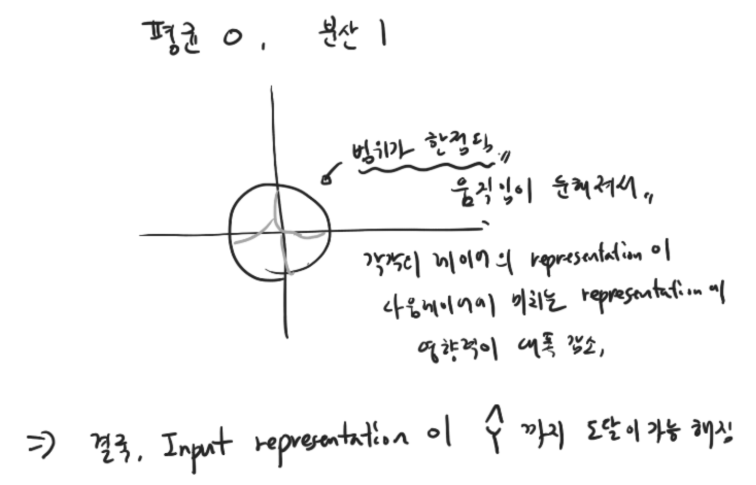 평균 0, 분산 1
범위가 한정됨,,
움직임이 순해져서,,
각각의 레이어의 representation이
다음레이어에 미치는 representation에
영향력이 대폭 감소,
⇒ 결국, Input representation이 Ŷ까지 도달이 가능해짐